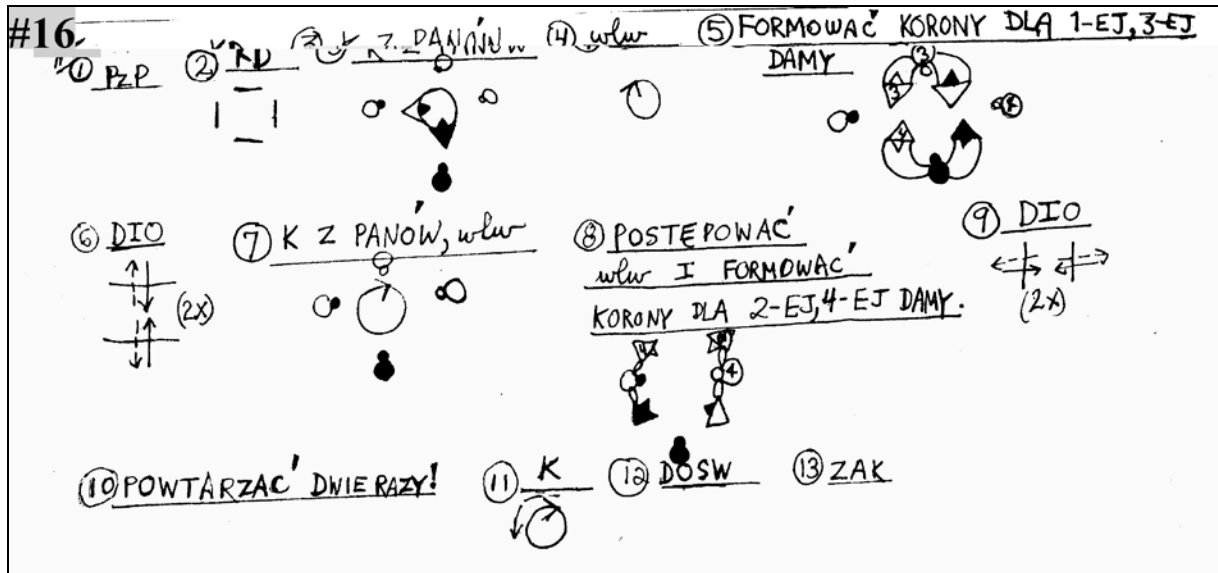 #16
① PZP ② RD ③ K Z PANÓW ④ wlw ⑤ FORMOWAĆ KORONY DLA 1-EJ, 3-EJ
DAMY
3
3
4
⑥ DIO ⑦ K Z PANÓW, wlw ⑧ POSTĘPOWAĆ ⑨ DIO
wlw I FORMOWAĆ
KORONY DLA 2-EJ, 4-EJ DAMY.
(2X)
(2X)
4
⑩ POWTARZAĆ DWIE RAZY! ⑪ K ⑫ DOSW ⑬ ZAK